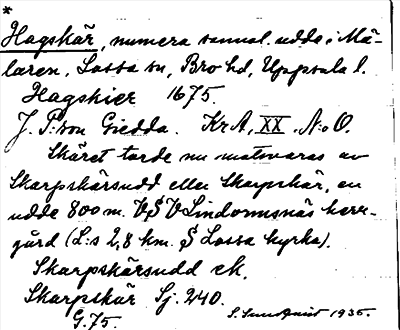 *
Hagskär, numera sannol. udde i Mä-
laren, Lossa sn, Bro hd, Uppsala l.
Hagskier 1675.
J. P:son Giedda. Kr A, XX, N:o O.
Skäret torde nu motsvaras av
Skarpskärsudd eller Skarpskär, en
udde 800 m. V § V Lindormsnäs herr-
gård (L:s 2,8 km. § Lossa kyrka).
Skarpskärsudd ek.
Skarpskär Sj. 240.
G. 75. S. Sundquist 1935.